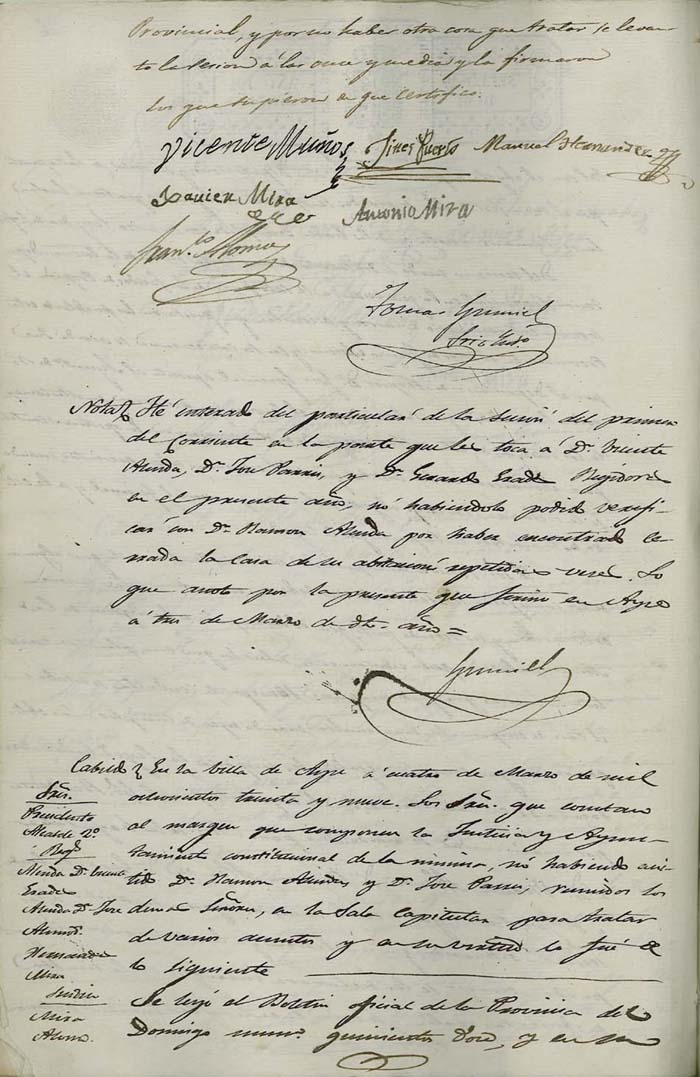 Provincial, y por no haber otra cosa que tratar se levan-
tó la sesion á las once y media y la firmaron
los que supieron de que certifico.
Vicente Muños Gines Manuel Hernandez
Xavier Mira Antonio Mira
Fran.co
Tomás Gumiel
Srio
Nota Hé enterado del particular de la sesion del primero
del Corriente en la parte que les toca á Dn. Vicente
Dn. Jose y Dn. Gerardo Regidores
en el presente año, nó habiendolo podido verifi-
car con Dn. Ramon por haber encontrado ce-
rrada la Casa de su abitacion repetidas veses. Lo
que anoto por la presente que firmo en Aspe
á tres de Marzo de dho. año =
Gumiel
Cabildo En la Villa de Aspe á cuatro de Marzo de mil
ochocientos treinta y nueve. Los Sres. que constan
al margen que componen la Justicia y Ayun-
tamiento constitucional de la misma, nó habiendo asis-
tido Dn. Ramon y Dn. Jose reunidos los
demas Señores, en la Sala Capitular para tratar
de varios asuntos y en su virtud lo fué
lo siguiente
Se leyó el Boletin oficial de la Provincia del
Domingo num.o quinientos doce, y en su
Sres.
Presidente
Alcalde 2º
Regs.
Dn.
Dn. Jose
Hernandez
Mira
Mira